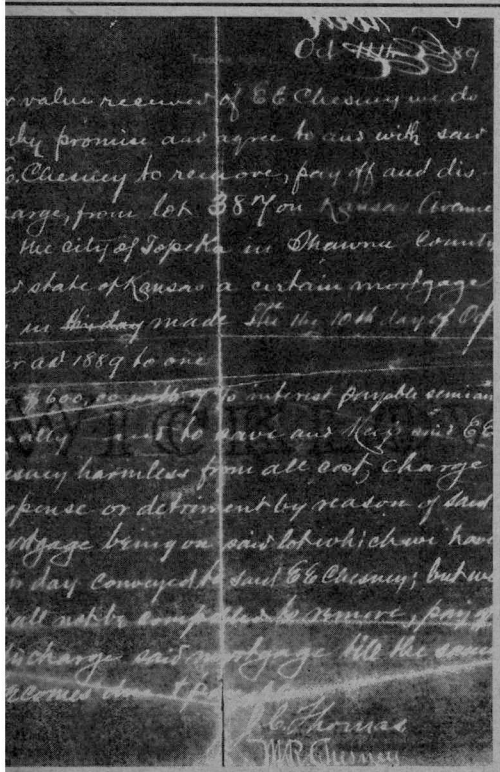 Oct 11th 1889
r value received of E E Chesney we do
eby promise and agree to and with said
E. Chesney to remove, pay off and dis-
harge, from lot 387 on Kansas Avenue
the city of Topeka in Shawnee County
d state of Kansas a certain mortgage
in made the 10th day of Oc
er ad 1889 to one
of 600.00 with 7% interest payable semian
ually and to save and keep said E E
esney harmless from all cost, charge
xpense or detriment by reason of said
ortgage being on said lot which we have
is day conveyed to said E E Chesney; but we
hall not be compelled to remove, pay of
discharge said mortgage till the same
ecomes due &
J. C. Thomas
M R Chesney